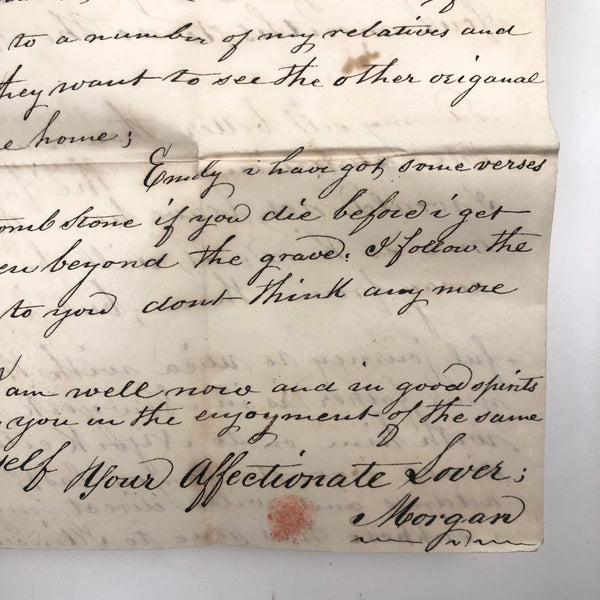 to a number of my relatives and
they want to see the other origanal
home;
Emily i have got some verses
tomb Stone if you die before i get
beyond the grave. I follow the
to you dont think any more
I am well now and in good spirits
you in the enjoyment of the same
self Your Affectionate Lover;
Morgan